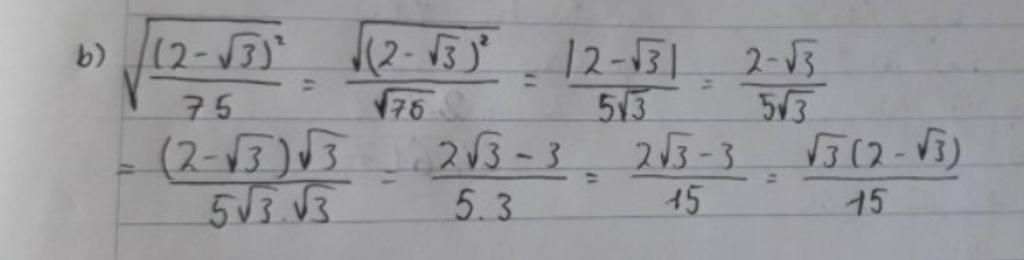 b) √((2-√3)²/75) = √((2-√3)²)/√75 = |2-√3|/5√3 = 2-√3/5√3
= (2-√3)√3/5√3.√3 = 2√3-3/5.3 = 2√3-3/15 = √3(2-√3)/15